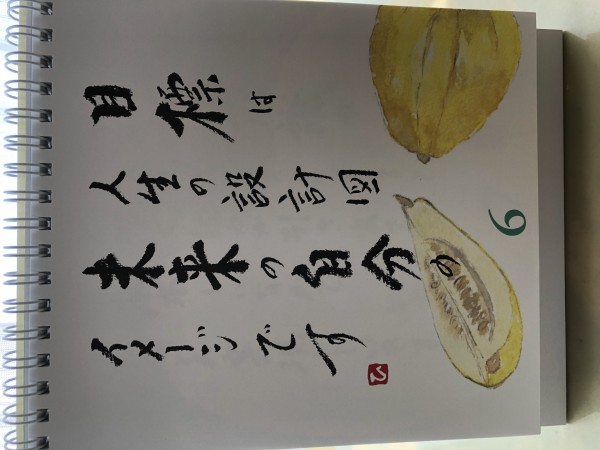 目標は
人生の設計図
未来の自分の
イメージです
6